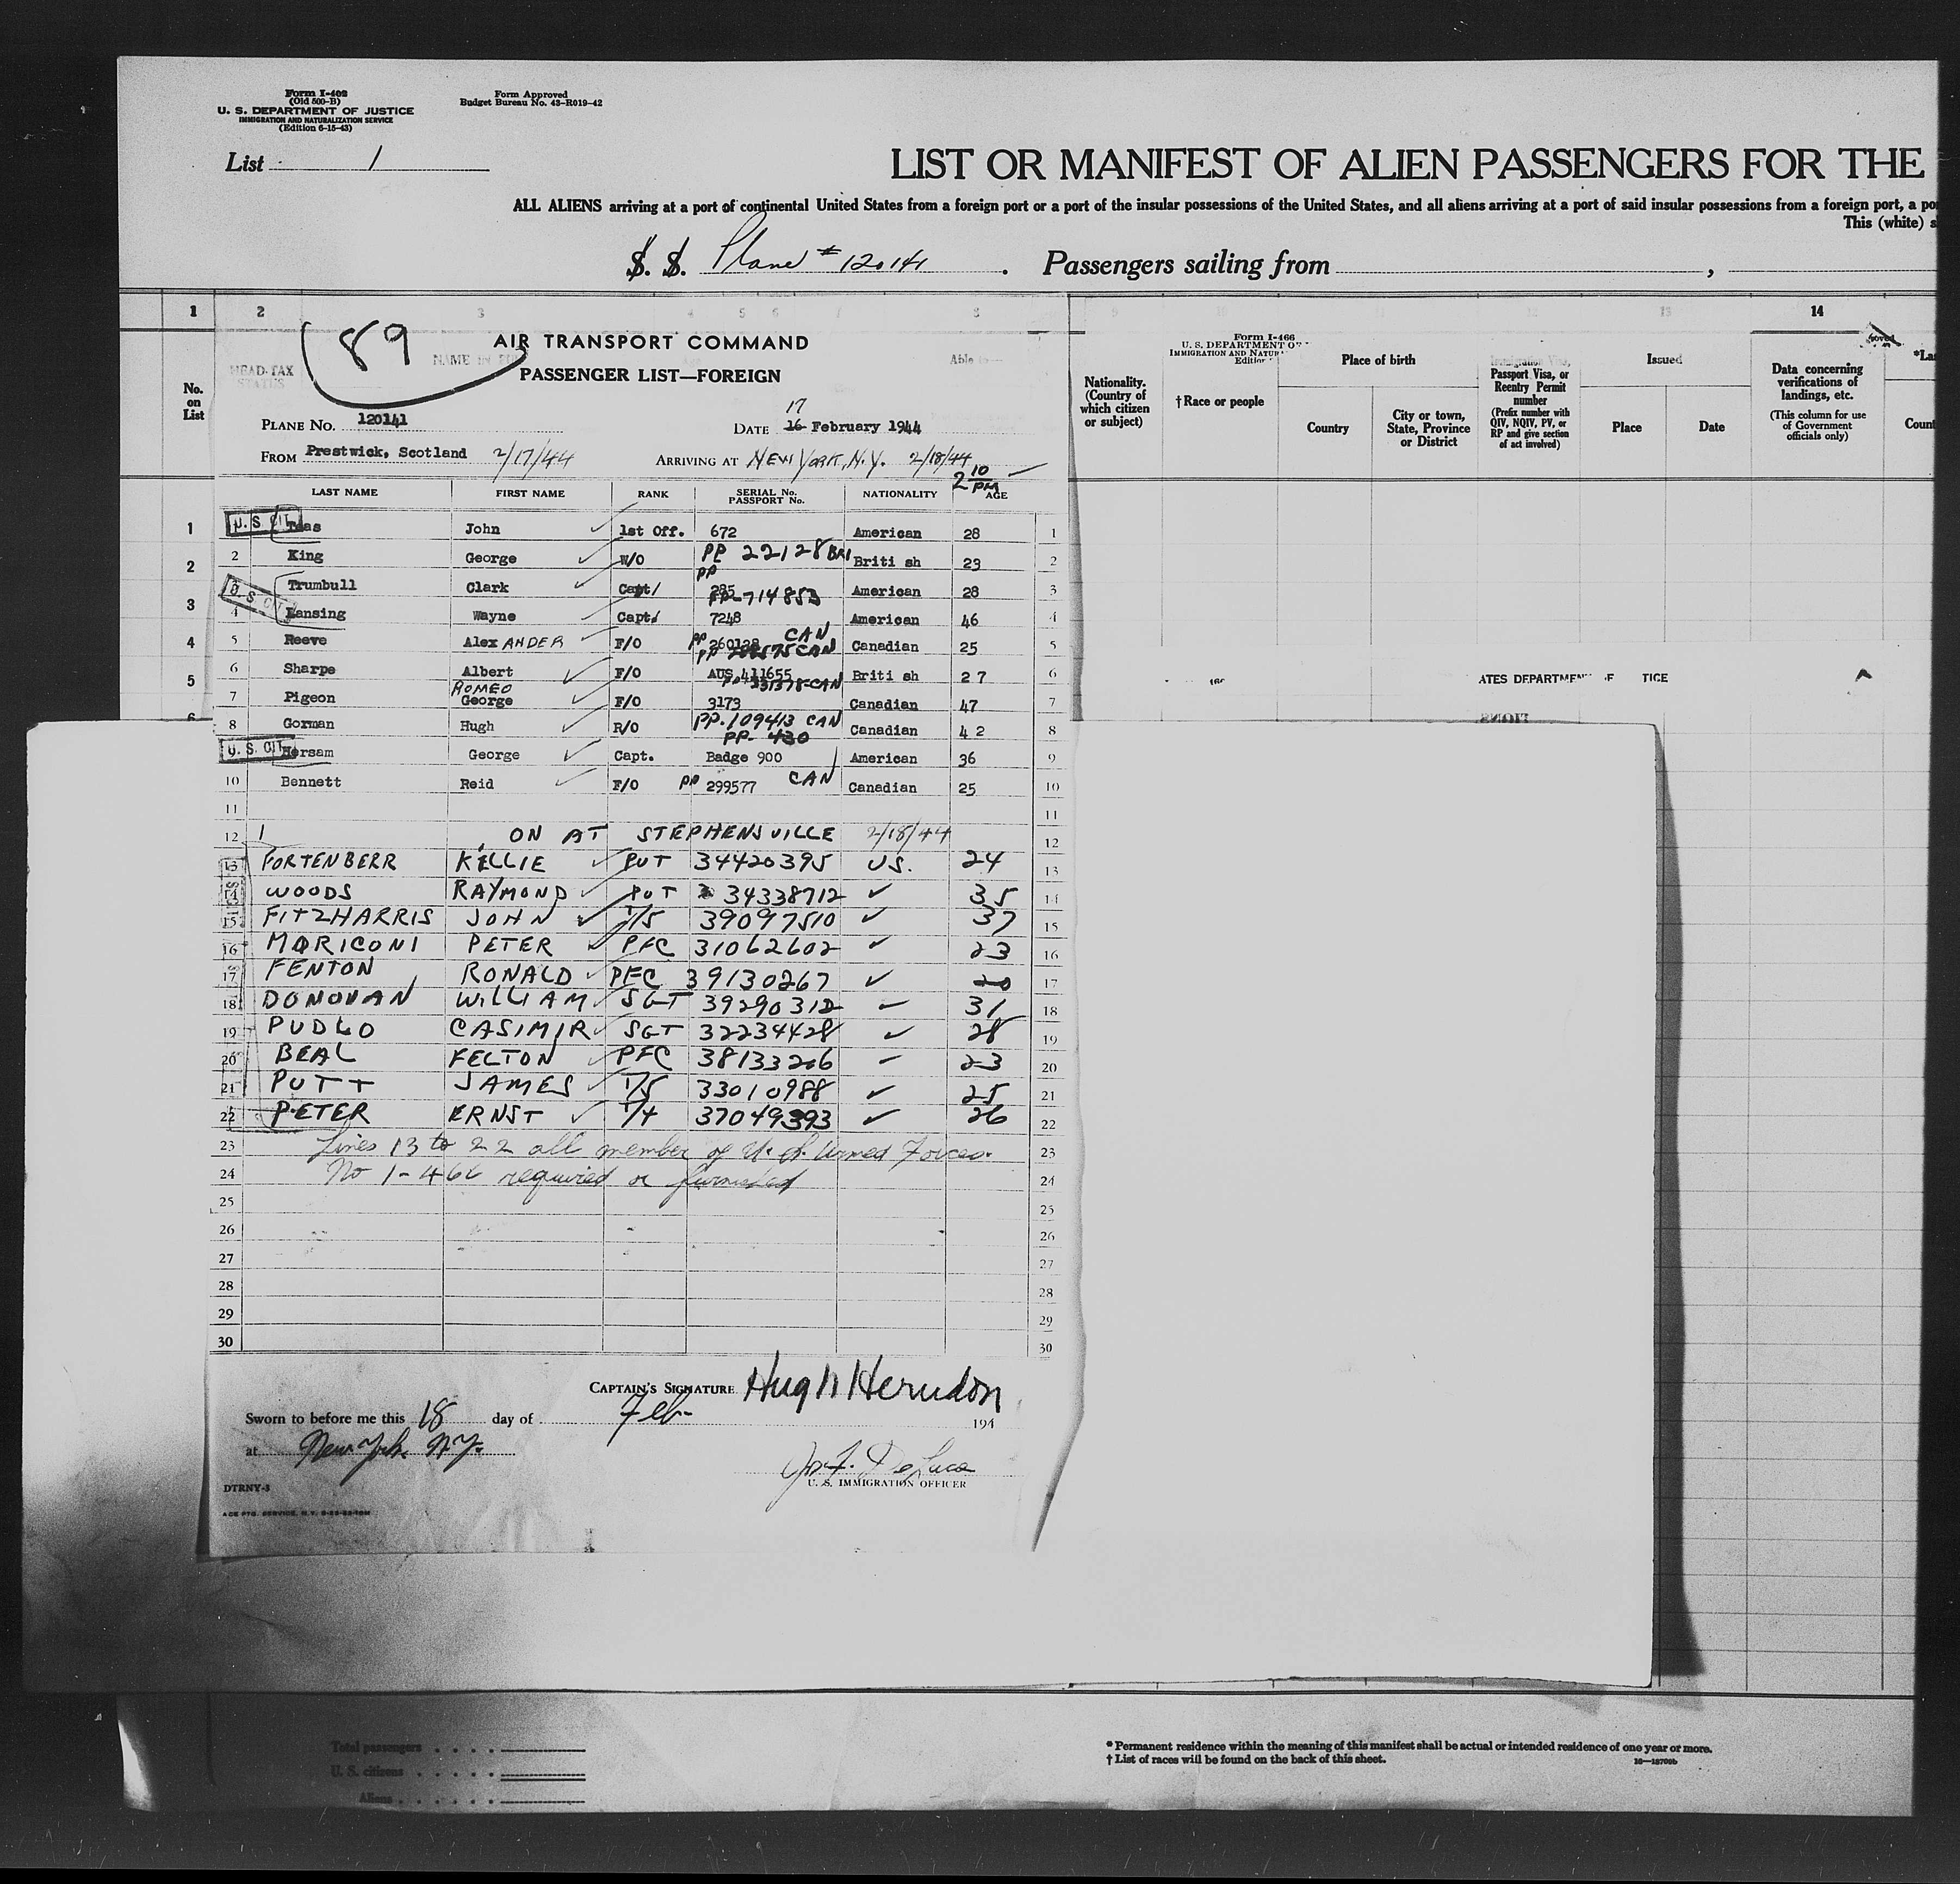 Form I-402
(Old 500-B)
U. S. DEPARTMENT OF JUSTICE
IMMIGRATION AND NATURALIZATION SERVICE
(Edition 6-15-43)
Form Approved
Budget Bureau No. 43-R019-42
List 1
LIST OR MANIFEST OF ALIEN PASSENGERS FOR THE
ALL ALIENS arriving at a port of continental United States from a foreign port or a port of the insular possessions of the United States, and all aliens arriving at a port of said insular possessions from a foreign port, a po
This (white) s
S. S. Plane # 120141 . Passengers sailing from ,
1 2 3 4 5 6 7 8 9 10 11 12 13 14
No. on List
HEAD-TAX STATUS
89
AIR TRANSPORT COMMAND
PASSENGER LIST—FOREIGN
PLANE NO. 120141
17
DATE 16 February 1944
FROM Prestwick, Scotland 2/17/44 ARRIVING AT NEW YORK, N.Y. 2/18/44
2 10 PM
LAST NAME FIRST NAME RANK SERIAL No. PASSPORT No. NATIONALITY AGE
U. S. CIT. Teas John 1st Off. 672 American 28 1
2 King George W/O PP 22128 BRI British 29 2
PP
3 Trumbull Clark Capt/ 285 American 28 3
PP-714853
4 Lansing Wayne Capt/ 7248 American 46 4
5 Reeve Alex ANDER F/O PP 260128 CAN Canadian 25 5
6 Sharpe Albert F/O AUS 411655 British 27 6
ROMEO
7 Pigeon George F/O 3173 Canadian 47 7
8 Gorman Hugh R/O PP.109413 CAN Canadian 42 8
PP- 430
U. S. CIT. Hersam George Capt. Badge 900 American 36 9
10 Bennett Reid F/O PP 299577 CAN Canadian 25 10
11 11
12 ON AT STEPHENSVILLE 2/18/44 12
13 FORTENBERR KELLIE PVT 34420395 US. 24 13
14 WOODS RAYMOND PVT 34338712 ✓ 35 14
15 FITZHARRIS JOHN T/5 39097510 ✓ 37 15
16 MORICONI PETER PFC 31062602 ✓ 23 16
17 FENTON RONALD PFC 39130267 ✓ 20 17
18 DONOVAN WILLIAM SGT 39290312 ✓ 31 18
19 PUDLO CASIMIR SGT 32234428 ✓ 28 19
20 BEAL FELTON PFC 38133206 ✓ 23 20
21 PUTT JAMES T/5 33010988 ✓ 25 21
22 PETER ERNST T/4 37049393 ✓ 26 22
23 Lines 13 to 22 all member of U. S. Armed Forces. 23
24 No I-466 required or furnished 24
25 25
26 26
27 27
28 28
29 29
30 30
CAPTAIN'S SIGNATURE Hugh Herndon
Sworn to before me this 18 day of Feb- 194
at New York N.Y.
Jos F. DeLuca
U. S. IMMIGRATION OFFICER
DTRNY-3
Nationality. (Country of which citizen or subject)
Form I-466
U. S. DEPARTMENT O
IMMIGRATION AND NATUR
Edition
†Race or people
Place of birth
Country
City or town, State, Province or District
Passport Visa, or Reentry Permit number
(Prefix number with QIV, NQIV, PV, or RP and give section of act involved)
Issued
Place
Date
Data concerning verifications of landings, etc.
(This column for use of Government officials only)
*La
Count
1
2
3
4
5
ATES DEPARTMEN F TICE
Total passengers . . . .
U. S. citizens . . . . .
Aliens . . . . . .
* Permanent residence within the meaning of this manifest shall be actual or intended residence of one year or more.
† List of races will be found on the back of this sheet.